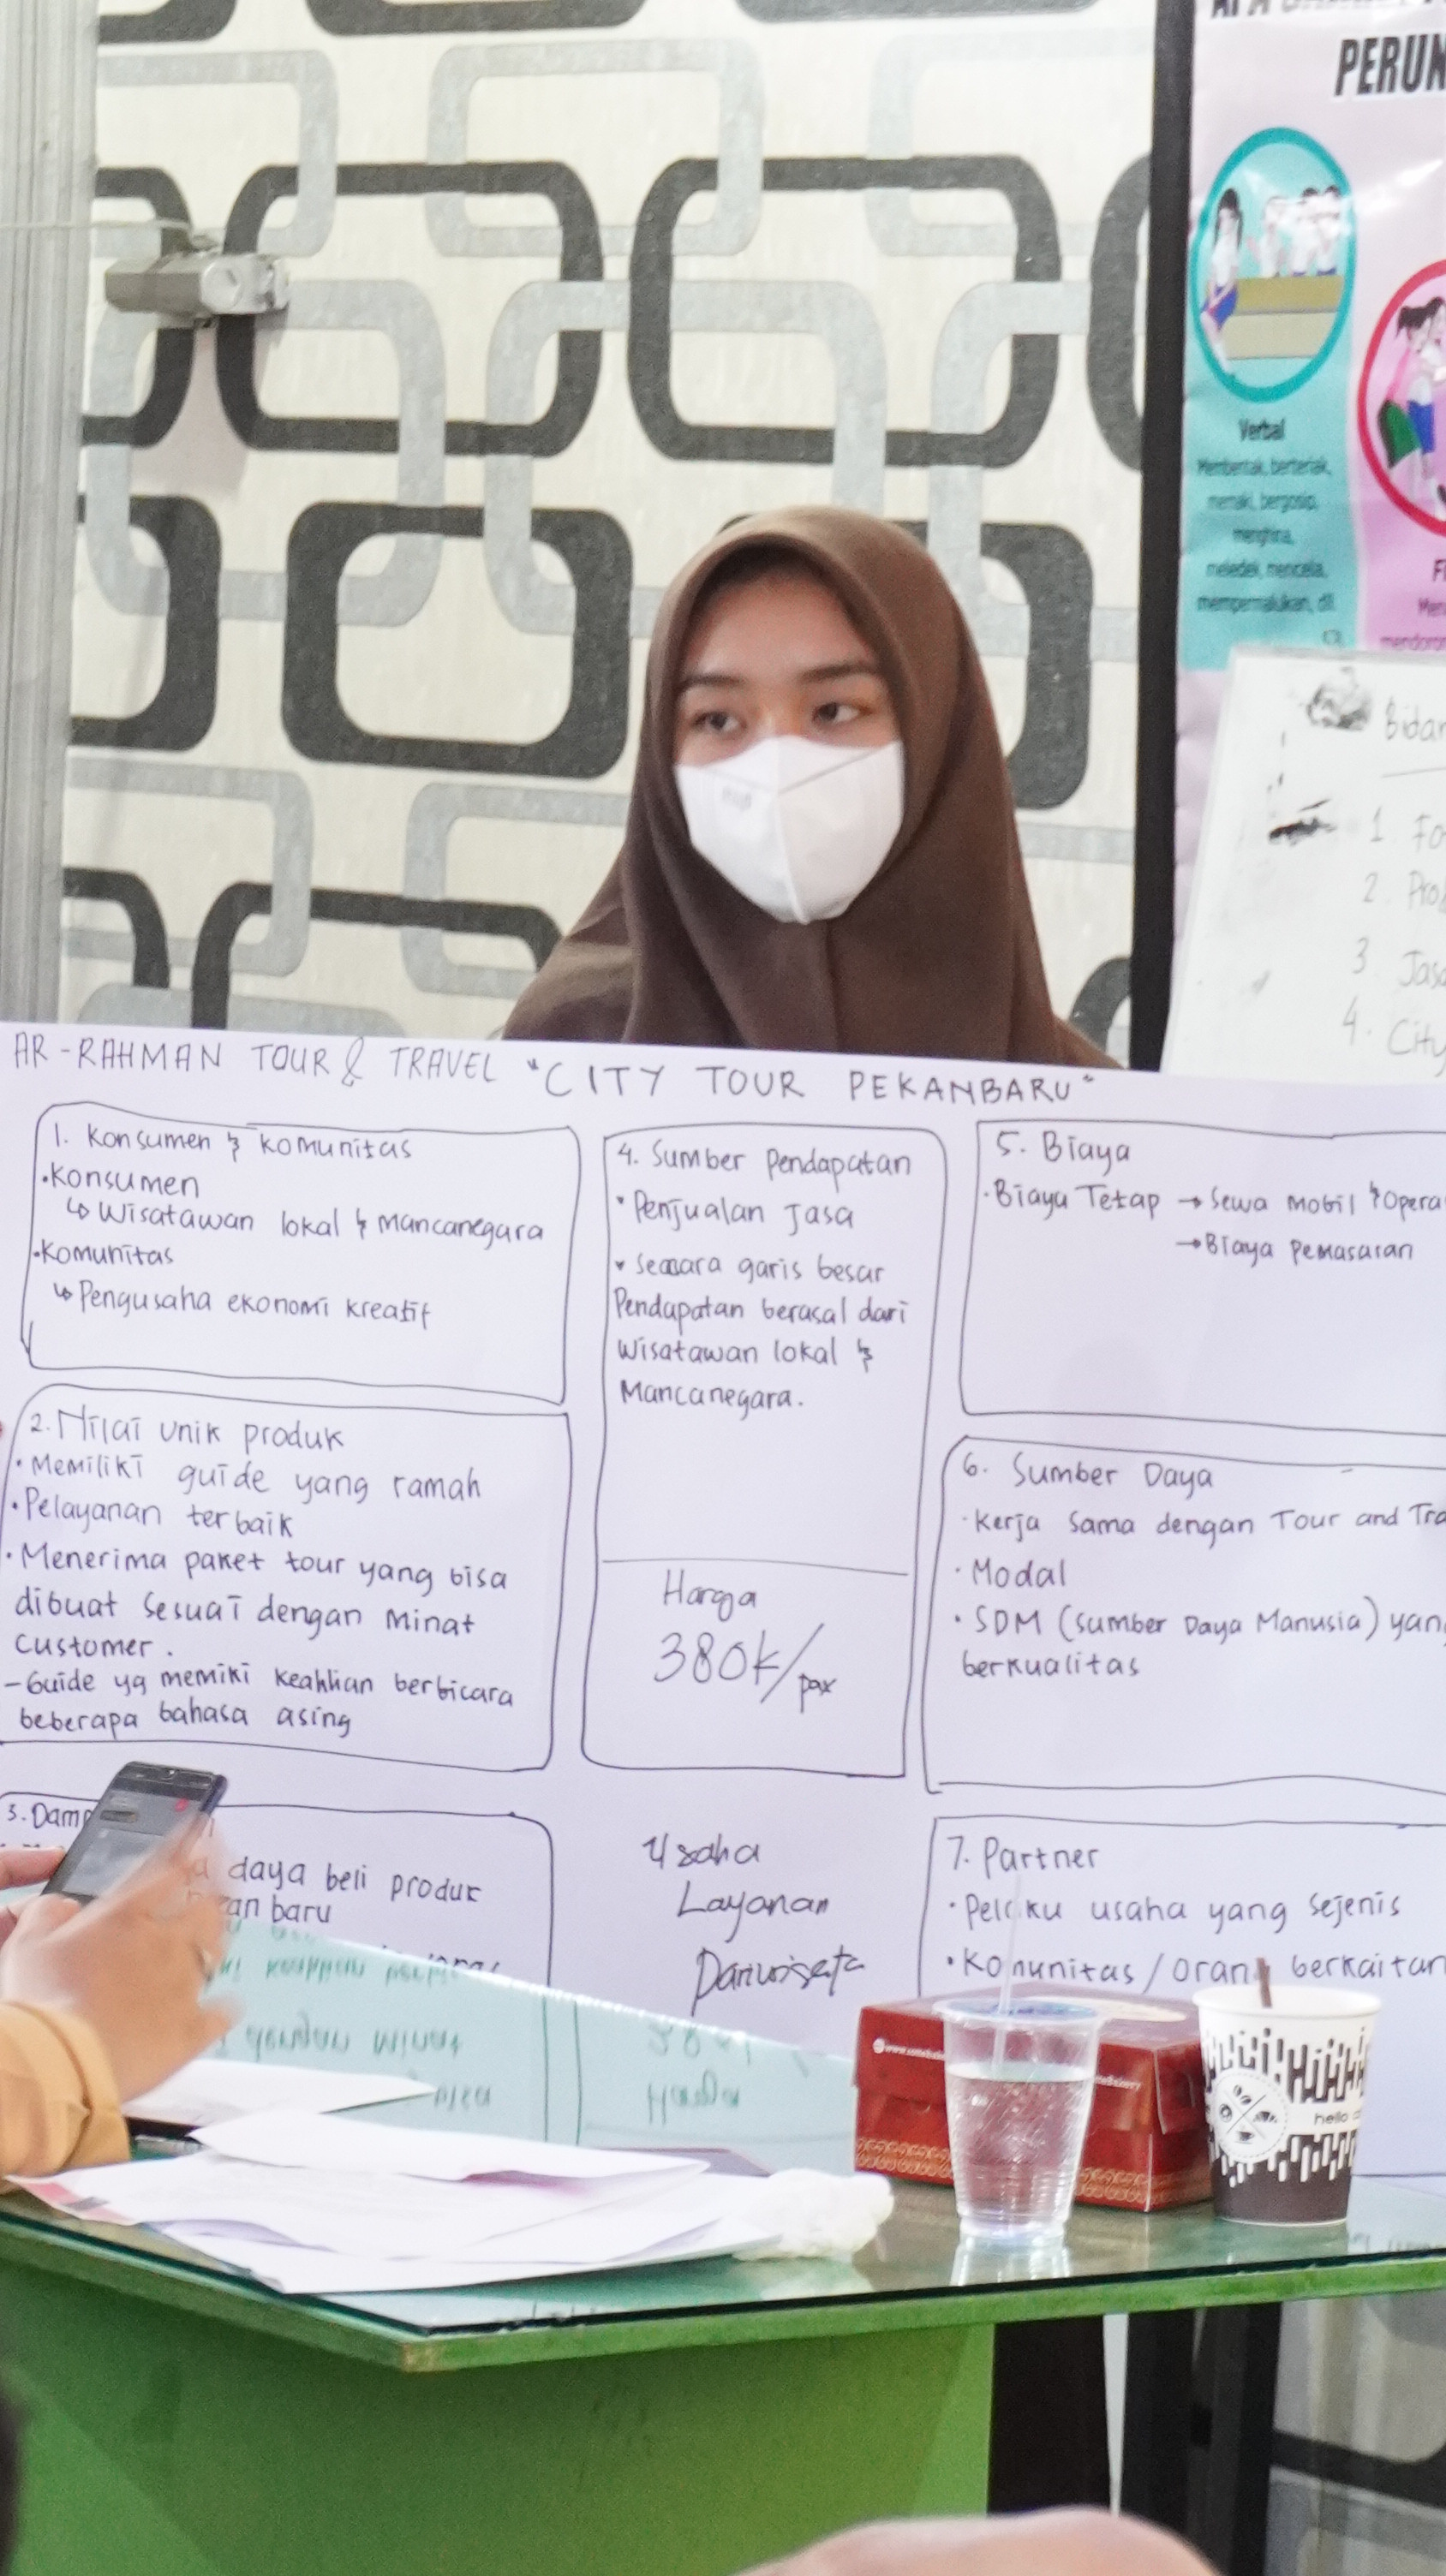 PERUN
Verbal
Membentak, berteriak,
memaki, bergosip,
menghina,
meledek, mencela,
mempermalukan, dll
Bidan
1 Fo
2. Pro
3. Jasa
4. City
AR-RAHMAN TOUR & TRAVEL "CITY TOUR PEKANBARU"
1. Konsumen & komunitas
•Konsumen
↳ Wisatawan lokal & Mancanegara
•Komunitas
↳ Pengusaha ekonomi kreatif
2. Nilai unik produk
•Memiliki guide yang ramah
•Pelayanan terbaik
•Menerima paket tour yang bisa
dibuat Sesuai dengan Minat
Customer.
-Guide yg memiki keahlian berbicara
beberapa bahasa asing
3. Damp
daya beli produk
baru
4. Sumber Pendapatan
• Penjualan Jasa
• secara garis besar
Pendapatan berasal dari
Wisatawan lokal &
Mancanegara.
Harga
380k/pax
Usaha
Layanan
Pariwisata
5. Biaya
•Biaya Tetap → Sewa Mobil & Opera
→ Biaya Pemasaran
6. Sumber Daya
•Kerja Sama dengan Tour and Tra
•Modal
• SDM (Sumber Daya Manusia) yan
berkualitas
7. Partner
•Pelaku usaha yang Sejenis
•Komunitas/orang berkaitan
hello